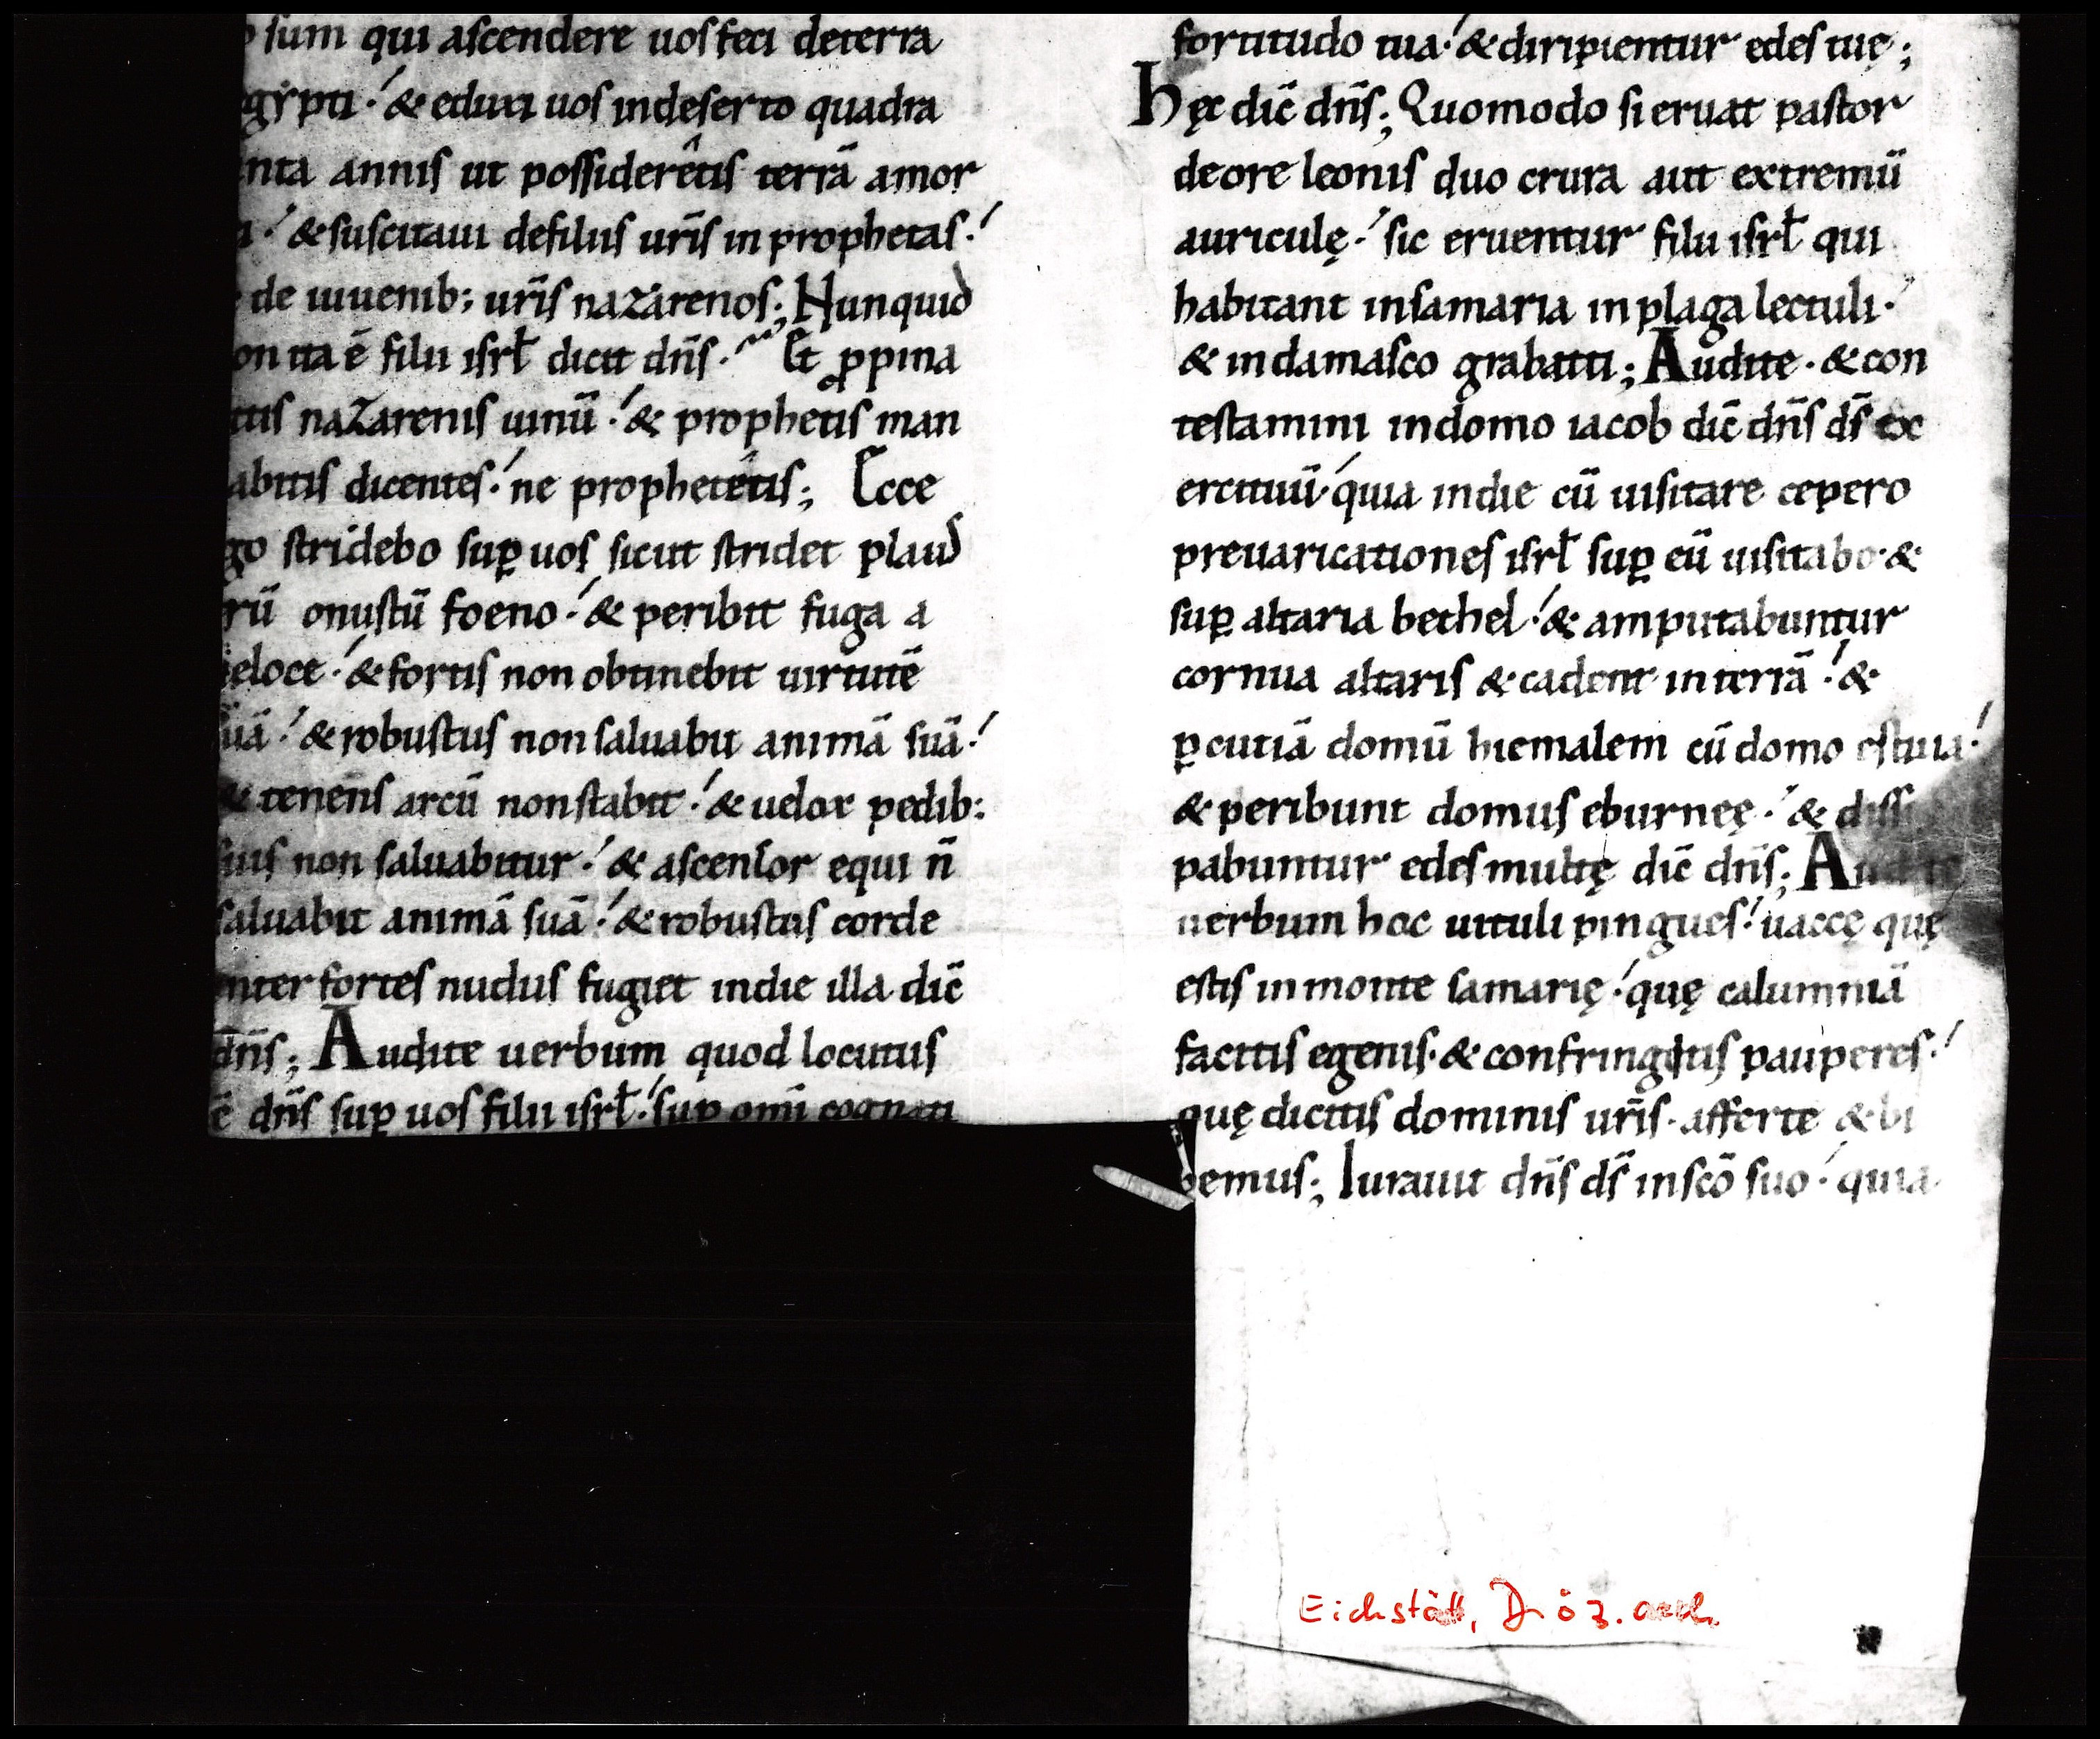 sum qui ascendere uos feci deterra
gẏpti·́ & eduxi uos indeserto quadra
nta annis ut possiderêtis terrā amor
i·́ & suscitaui defiliis ur̄is in prophetas·́
de iuuenib; ur̄is nazarenos; Nunquid
on ita ē filii isrł dicit dn̄s· Et ꝓpina
tis nazarenis uinū·́ & prophetis man
abitis dicentes·́ ne prophetétis; Ecce
go stridebo suꝑ uos sicut stridet plaus
rū onustū foeno·́ & peribit fuga a
eloce·́ & fortis non obtinebit uirtutē
uā·́ & robustus non saluabit animā suā·́
& tenens arcū non stabit·́ & uelox pedib;
suis non saluabitur·́ & ascensor equi n̄
saluabit animā suā·́ & robustus corde
inter fortes nudus fugiet indie illa dic̄
dn̄s; Audite uerbum quod locutus
ē dn̄s suꝑ uos filii isrł·́ suꝑ omī cognati
fortitudo tua·́ & diripientur edes tuę;
Hęc dic̄ dn̄s; Quomodo si eruat pastor
deore leonis duo crura aut extremū
auriculę·́ sic eruentur filii isrł qui
habitant insamaria in plaga lectuli·́
& indamasco grabatti; Audite· & con
testamini indomo iacob dic̄ dn̄s ds̄ ex
ercituū·́ quia indie cū uisitare cepero
preuaricationes isrł suꝑ eū uisitabo· &
suꝑ altaria bethel·́ & amputabuntur
cornua altaris & cadent interrā·́ &
ꝑcutiā domū hiemalem cū domo estiua·́
& peribunt domus eburneę·́ & dissi
pabuntur edes multę dic̄ dn̄s; Audite
uerbum hoc uituli pingues·́ uaccę quę
estis inmonte samarię·́ quę calumniā
facitis egenis· & confringitis pauperes·́
quę dicitis dominis ur̄is· afferte & bi
bemus; Iurauit dn̄s ds̄ inscō suo·́ quia
Eichstätt, Diöz.arch.